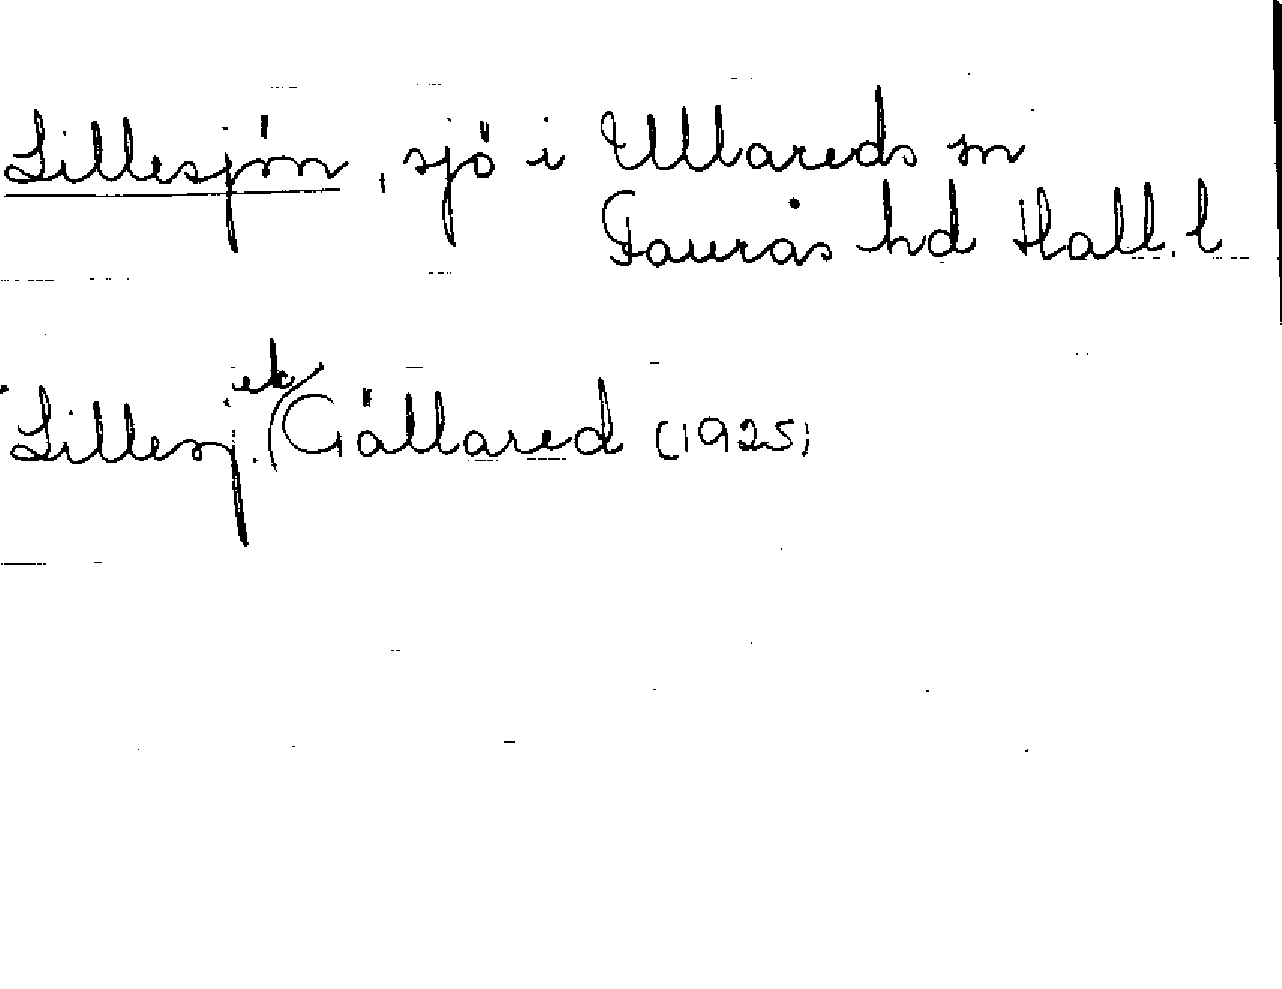 Lillesjön, sjö i Ullareds sn
Faurås hd Hall. l
Lillesj. ek/Gällared (1925)